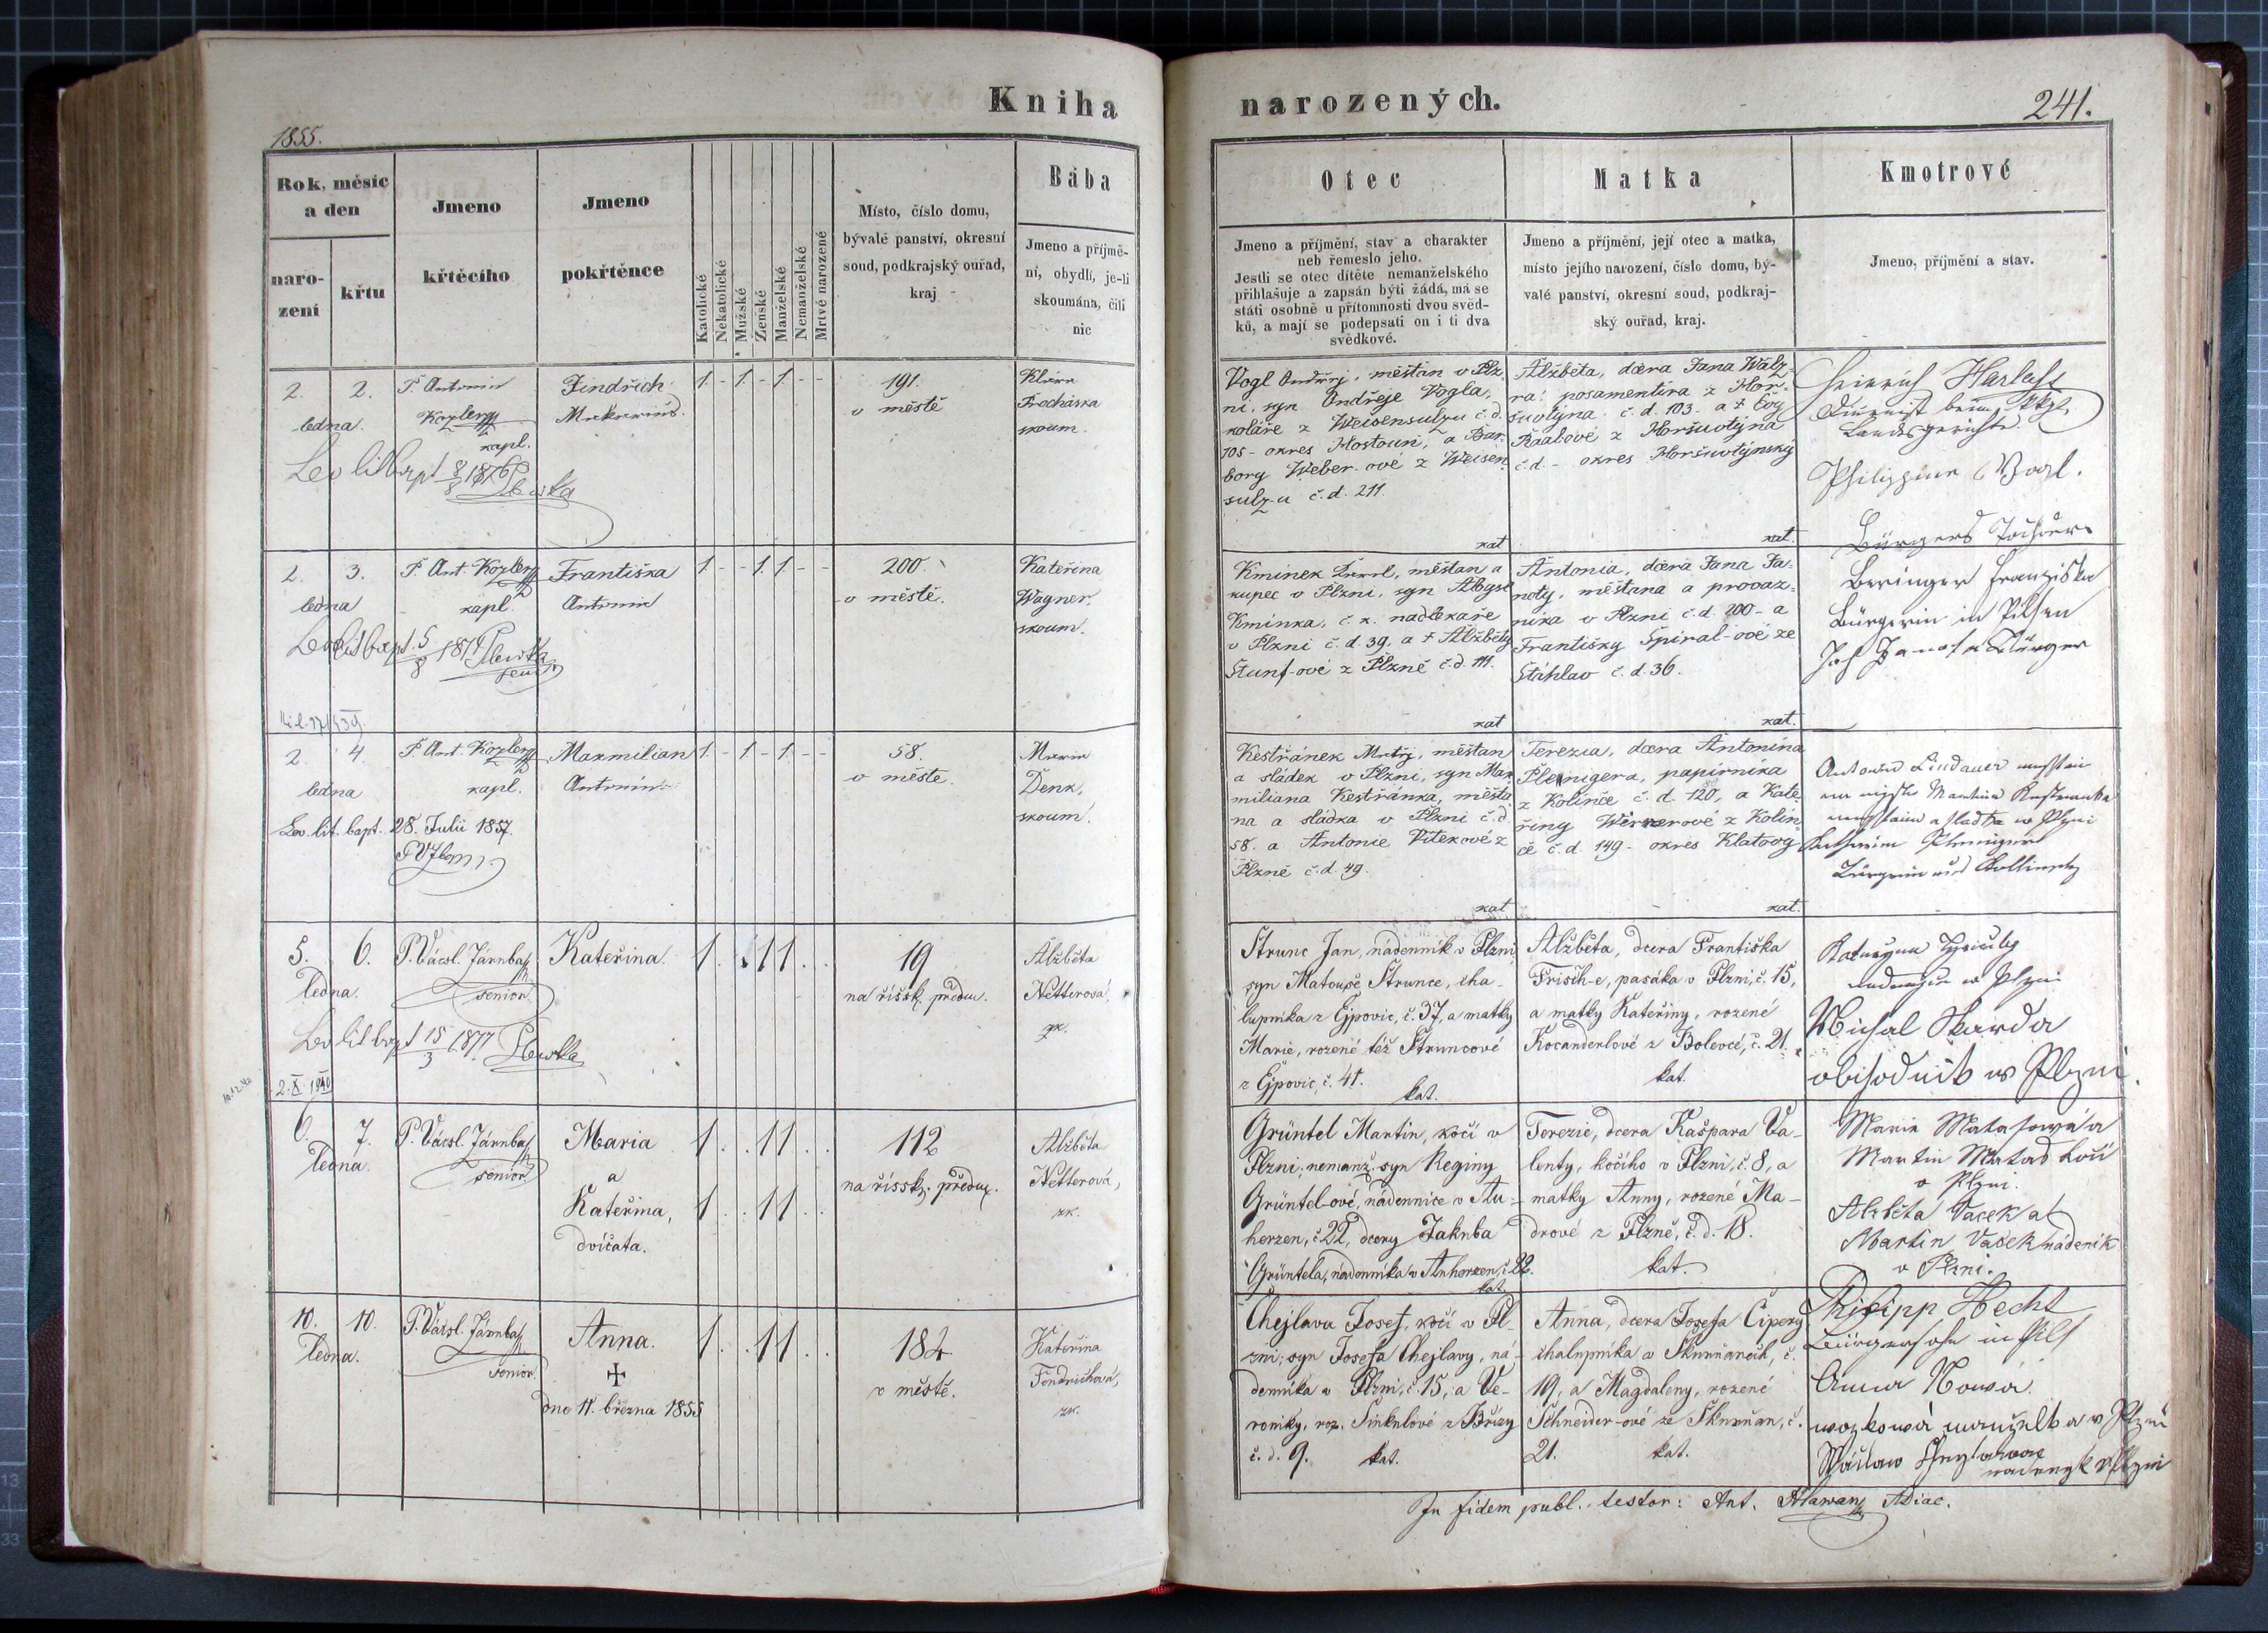 Kniha
narozených.
241.
1855.
Rok, měsíc
a den
naro-
zení
křtu
Jmeno
křtěcího
Jmeno
pokřtěnce
Katolické
Nekatolické
Mužské
Ženské
Manželské
Nemanželské
Mrtvé narozené
Místo, číslo domu,
bývalé panství, okresní
soud, podkrajský ouřad,
kraj
Bába
Jmeno a příjmě-
ní, obydlí, je-li
skoumána, čili
nic
Otec
Jmeno a příjmění, stav a charakter
neb řemeslo jeho.
Jestli se otec dítěte nemanželského
přihlašuje a zapsán býti žádá, má se
státi osobně u přítomnosti dvou svěd-
ků, a mají se podepsati on i ti dva
svědkové.
Matka
Jmeno a příjmění, její otec a matka,
místo jejího narození, číslo domu, bý-
valé panství, okresní soud, podkraj-
ský ouřad, kraj.
Kmotrové
Jmeno, příjmění a stav.
2. 2.
ledna.
P. Antonin
kapl.
Lev lit bapt 8/8 1876
Jindřich
1 - 1 - 1 - -
191.
v městě
Klára
Procháska
skoum.
Vogl Ondřej, měštan v Plz-
ni, syn Ondřeje Vogla,
koláře z Weisensulzu č. d.
105 - okres Hostoun, a Bar-
bory Weber-ové z Weisen
sulzu č. d. 211.
kat
Alžběta, dcera Jana Walz-
ra, posamentíra z Hor-
šuotýna č. d. 103. a † Evy
Raabové z Horšuotýna
č. d. - okres Horšuotýnský
kat.
Heinrich Harlass
Diurnist beim
Landesgerichte
Philippine Vogl.
Bürgers Tochter
2. 3.
ledna
P. Ant. Kozler
kapl.
Lev lit bapt. 5/8 187
Františka
Antonie
1 - - 1 1 - -
200.
v městě.
Kateřina
Wagner.
skoum.
Kminek Karel, měštan a
kupec v Plzni, syn Aloyse
Kminka, c. k. nadlékaře
v Plzni č. d. 39. a † Alžběty
Štunf-ové z Plzně č. d. 111.
kat
Antonia, dcera Jana Ja-
noty, měštana a provaz-
níka v Plzni č. d. 200 - a
Františky Spiral-ové ze
Stáhlav č. d. 36.
kat.
Beringer Franziska
Bürgerin in Pilsen
Joh Janota Bürger
2. 4.
ledna
P. Ant. Kozler
kapl.
Lev. lit. bapt. 28. Julii 1857.
Maxmilian
Antonin
1 - 1 - 1 - -
58.
v městě.
Maria
Denk.
skoum.
Kestřánek Matěj, měštan
a sládek v Plzni, syn Max
miliana Kestřánka, měšta-
na a sládka v Plzni č. d.
58. a Antonie Vítekové z
Plzně č. d. 49.
kat
Terezia, dcera Antonína
Plenigera, papírníka
z Kolínče č. d. 120, a Kate-
řiny Wernerové z Kolín-
če č. d. 149 - okres Klatovy
kat.
Antonin Lindauer
Katherine
5. 6.
ledna.
P. Vácsl. Járnbaf
senior.
Lev lit bapt 15/3 1877
2. X 1940
Kateřina.
1 . . 1 1 . .
19
na říssk. předm.
Alžběta
Netterová,
zk.
Strunc Jan, nádenník v Plzni,
syn Matouše Strunce, cha-
lupníka z Ejpovic, č. 37, a matky
Marie, rozené též Struncové
z Ejpovic, č. 41.
kat.
Alžběta, dcera Františka
Frisch-e, pasáka v Plzni, č. 15,
a matky Kateřiny, rozené
Kocanderlové z Bolevce, č. 21.
kat.
Michal Skarda
obchodnik w Plzni.
6. 7.
ledna.
P. Vácsl. Járnbaf
senior
Maria
a
Kateřina,
dvíčata.
1 . . 1 1 . .
1 . . 1 1 . .
112
na říssk. předm.
Alžběta
Netterová,
zk.
Grüntel Martin, kočí v
Plzni, nemanž. syn Reginy
Grüntel-ové, nádennice v Au-
herzen, č 22, dcery Jakuba
Grüntela, nádenníka v Auherzen, č 22.
kat.
Terezie, dcera Kašpara Va-
lenty, kočího v Plzni, č. 8, a
matky Anny, rozené Ma-
drové z Plzně, č. d. 18.
kat.
Marie Matasowá a
Martin Matas kočí
v Plzni.
Alzběta Vacek a
Martin Vacek nádeník
v Plzni.
10. 10.
ledna.
P. Vácsl. Járnbaf
senior.
Anna.
✝
dne 11. března 1855
1 . . 1 1 . .
182
v městě.
Kateřina
Fendrichová,
zk.
Chejlava Josef, kočí v Pl-
zni; syn Josefa Chejlavy, ná-
denníka v Plzni, č. 15, a Ve-
roniky, roz. Sinkulové z Břízy
č. d. 9. kat.
Anna, dcera Josefa Cipery
chalupníka v Skurňanech, č.
19, a Magdaleny, rozené
Schneider-ové ze Skurňan, č.
21. kat.
Philipp Hecht
Bürgersohn in Pils
Anna Nowá
wozkowá manželka w Plzni
In fidem publ. testor: Ant. Hlawan